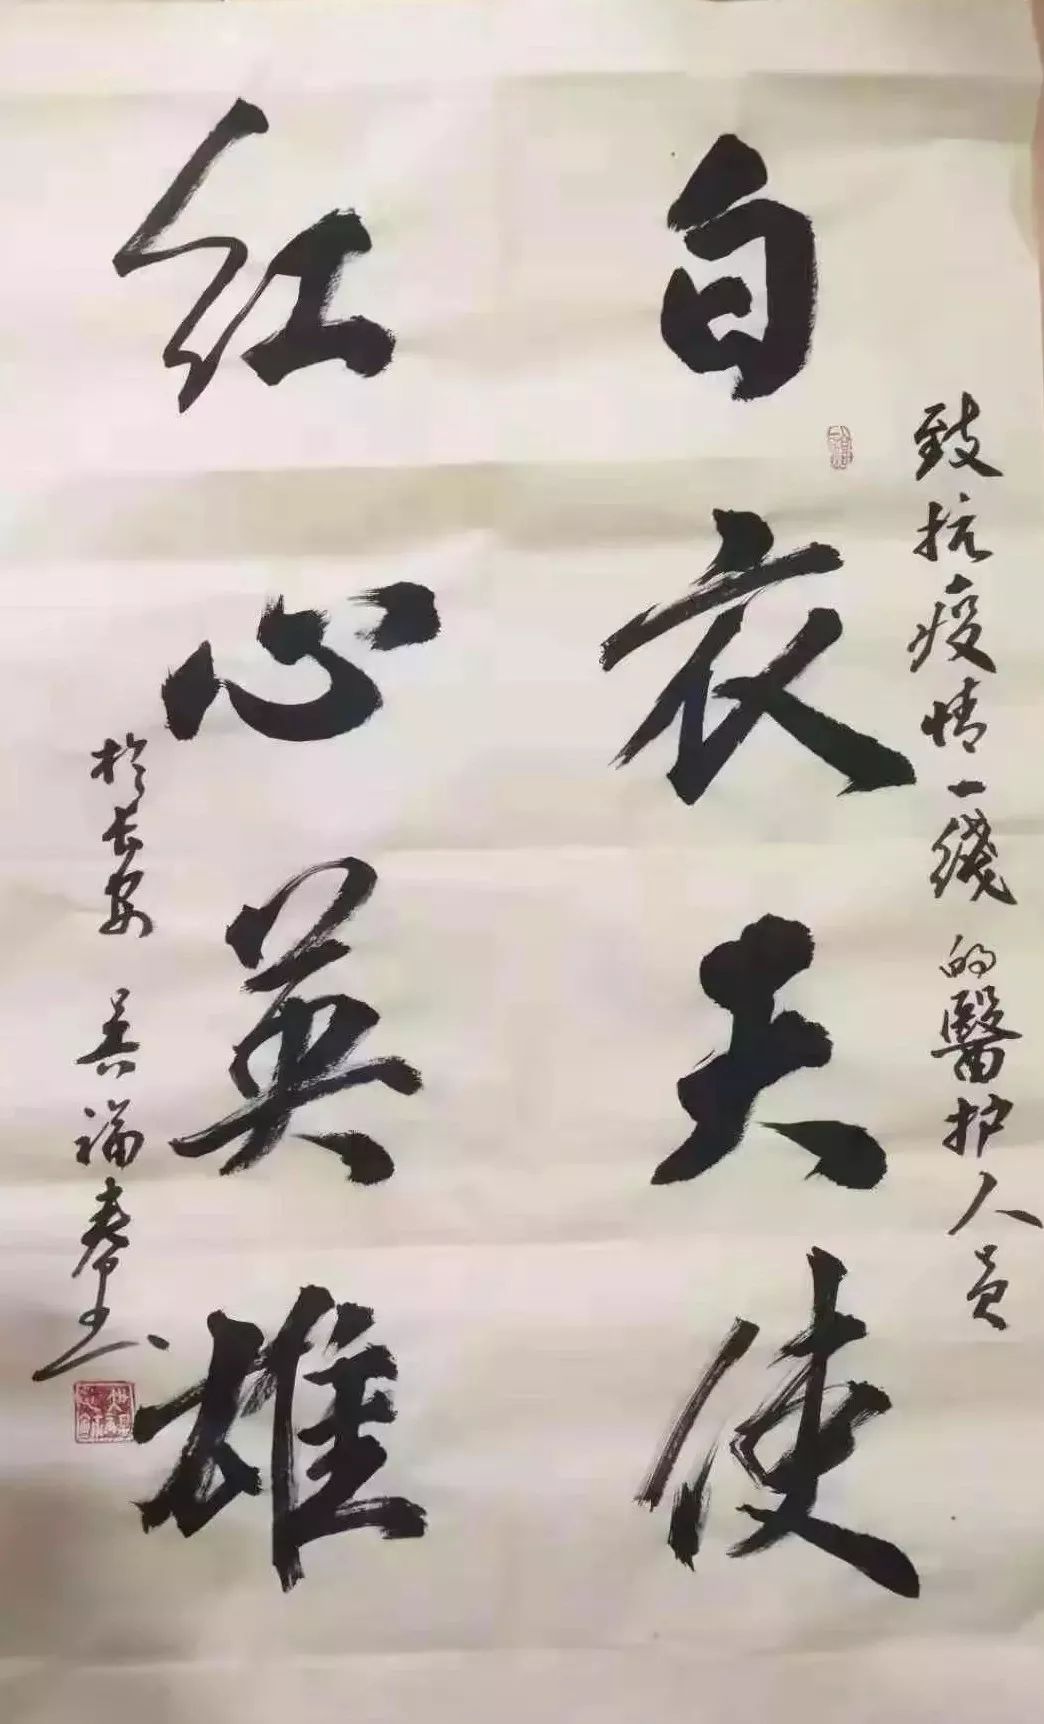 致抗疫情一綫的醫护人员
白衣天使
红心英雄
於长安 吴福春书